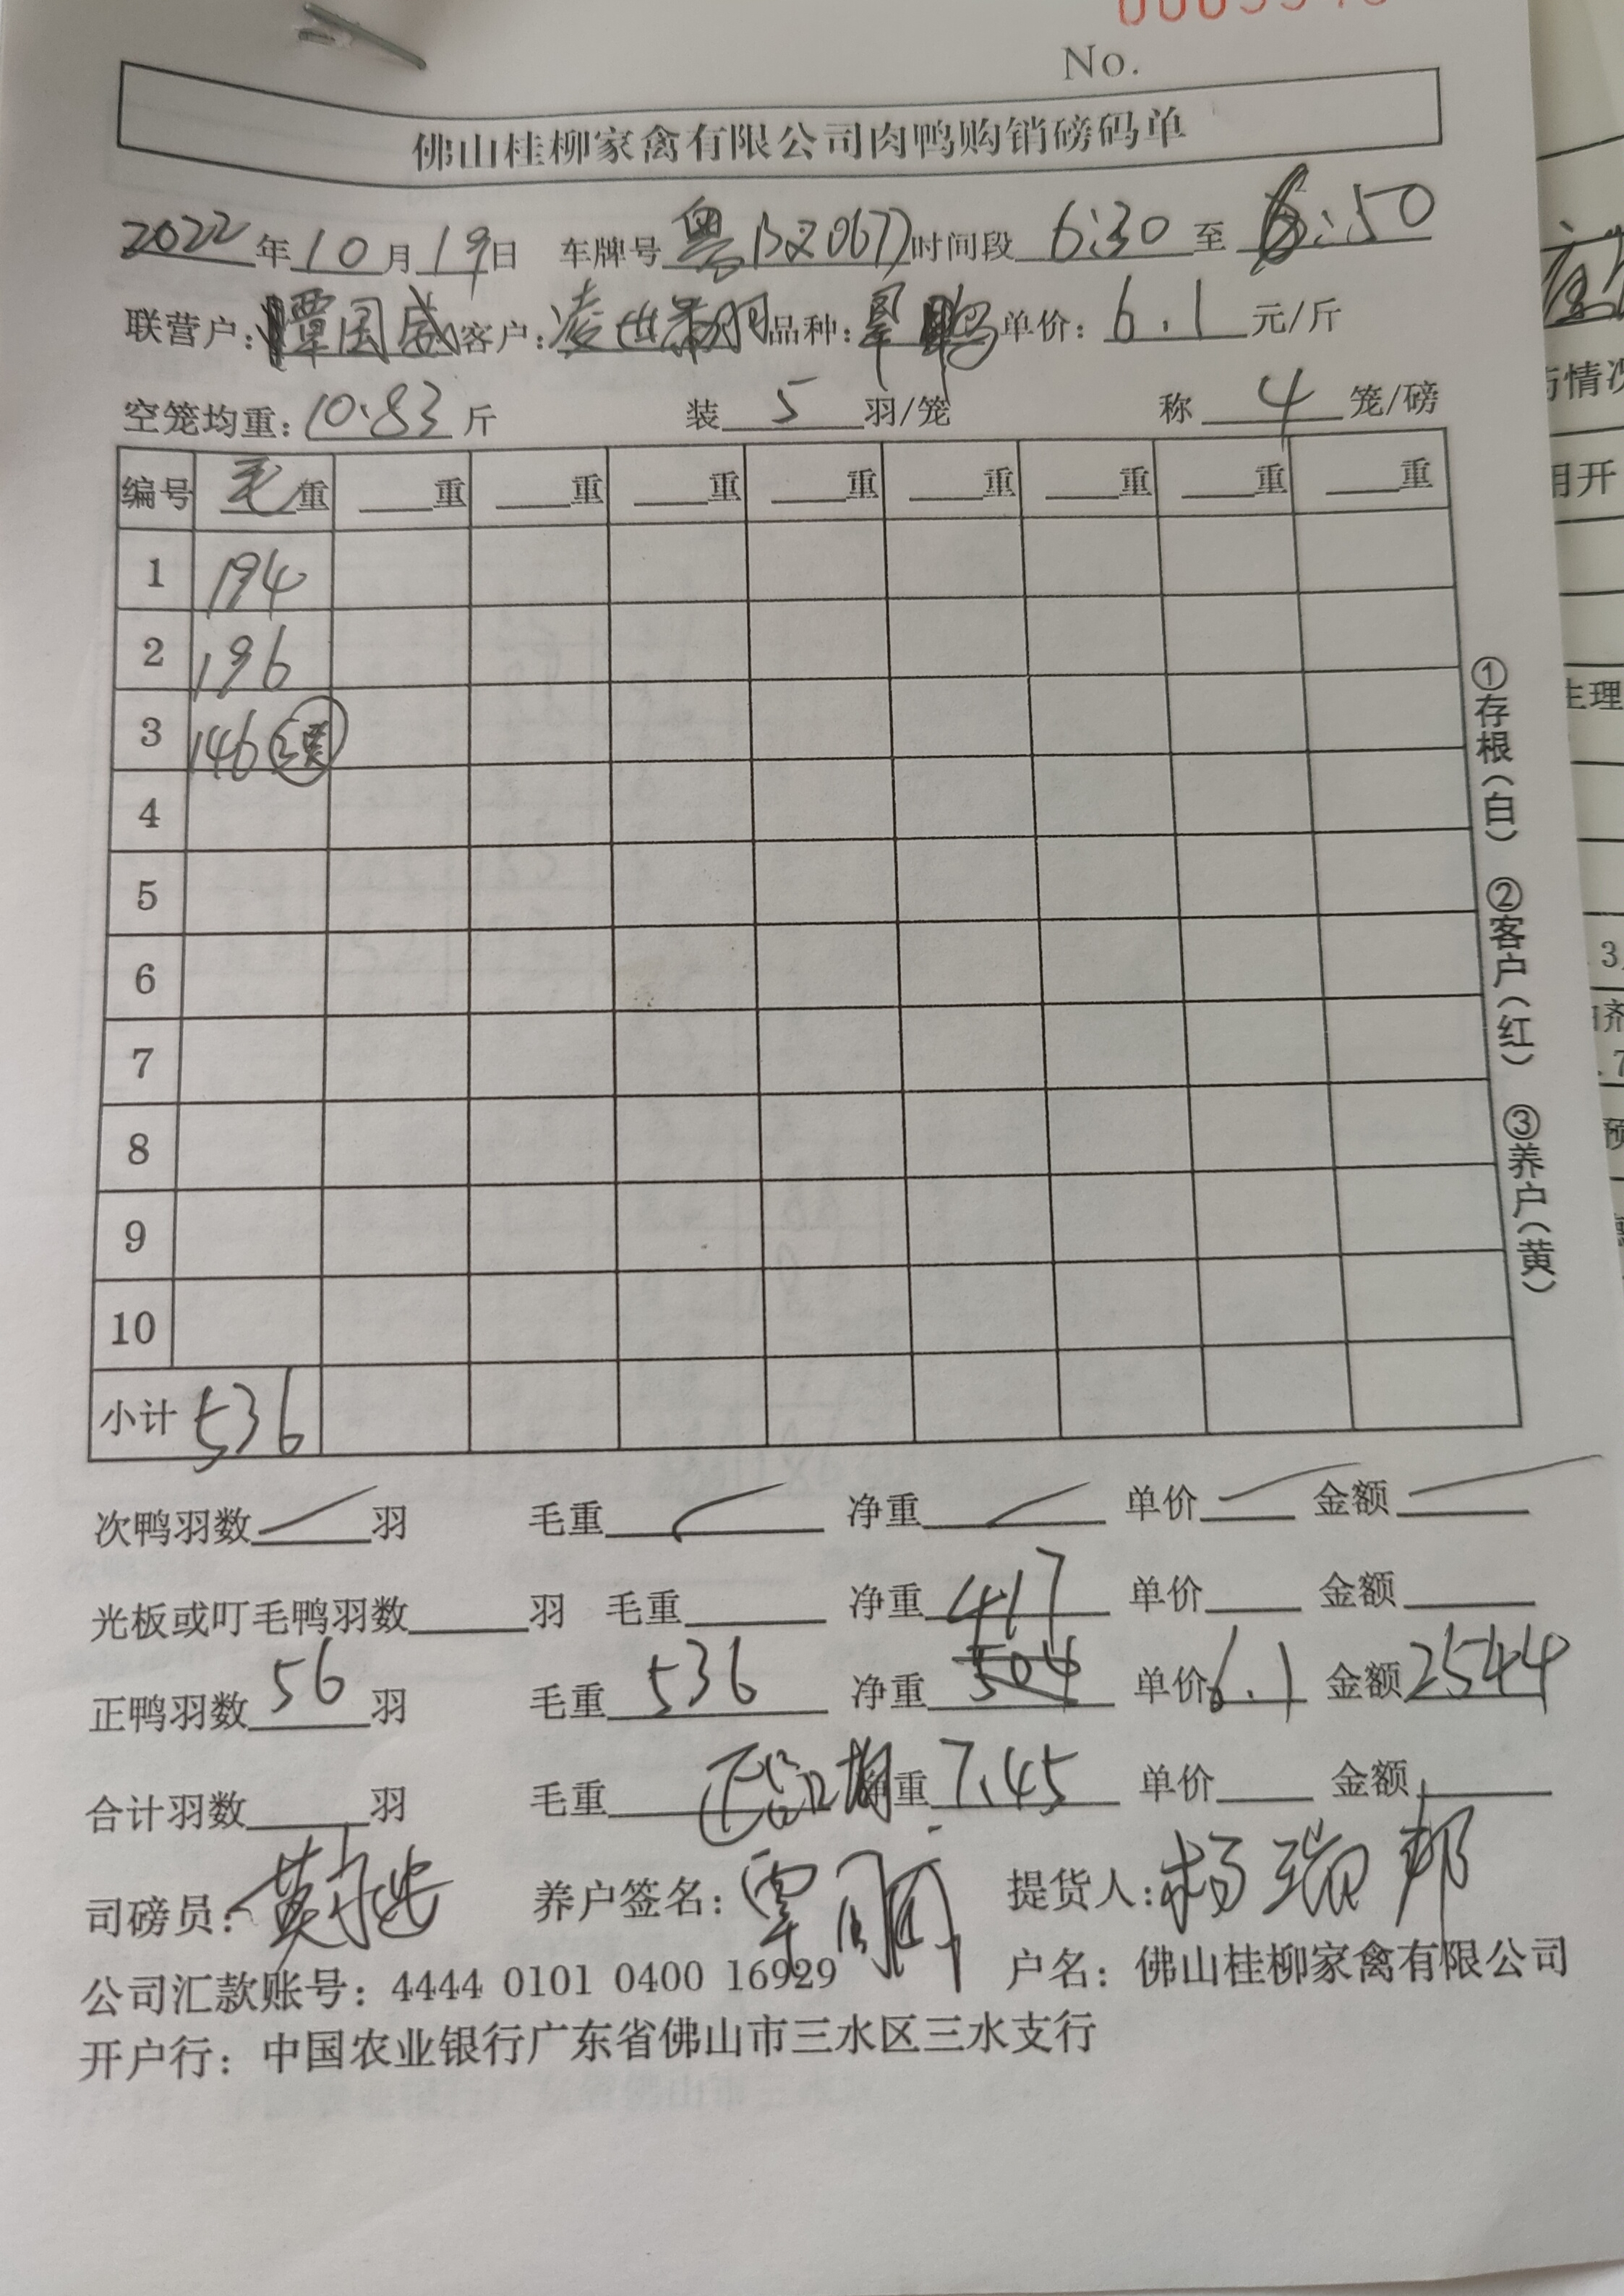 No.
佛山桂柳家禽有限公司肉鸭购销磅码单
2022年10月19日 车牌号粤 时间段6:30至6:50
联营户:覃国威 客户:凌世 品种: 鸭 单价:6.1元/斤
空笼均重:10.83斤 装5羽/笼 称4笼/磅
编号 毛重 重 重 重 重 重 重 重 重
1 194
2 196
3 146
4
5
6
7
8
9
10
小计 536
①存根(白) ②客户(红) ③养户(黄)
次鸭羽数 羽 毛重 净重 单价 金额
光板或叮毛鸭羽数 羽 毛重 净重417 单价 金额
正鸭羽数56羽 毛重536 净重504 单价6.1 金额2544
合计羽数 羽 毛重 净重7.45 单价 金额
司磅员:黄 养户签名:覃 提货人:杨瑞邦
公司汇款账号:4444 0101 0400 16929 户名:佛山桂柳家禽有限公司
开户行:中国农业银行广东省佛山市三水区三水支行